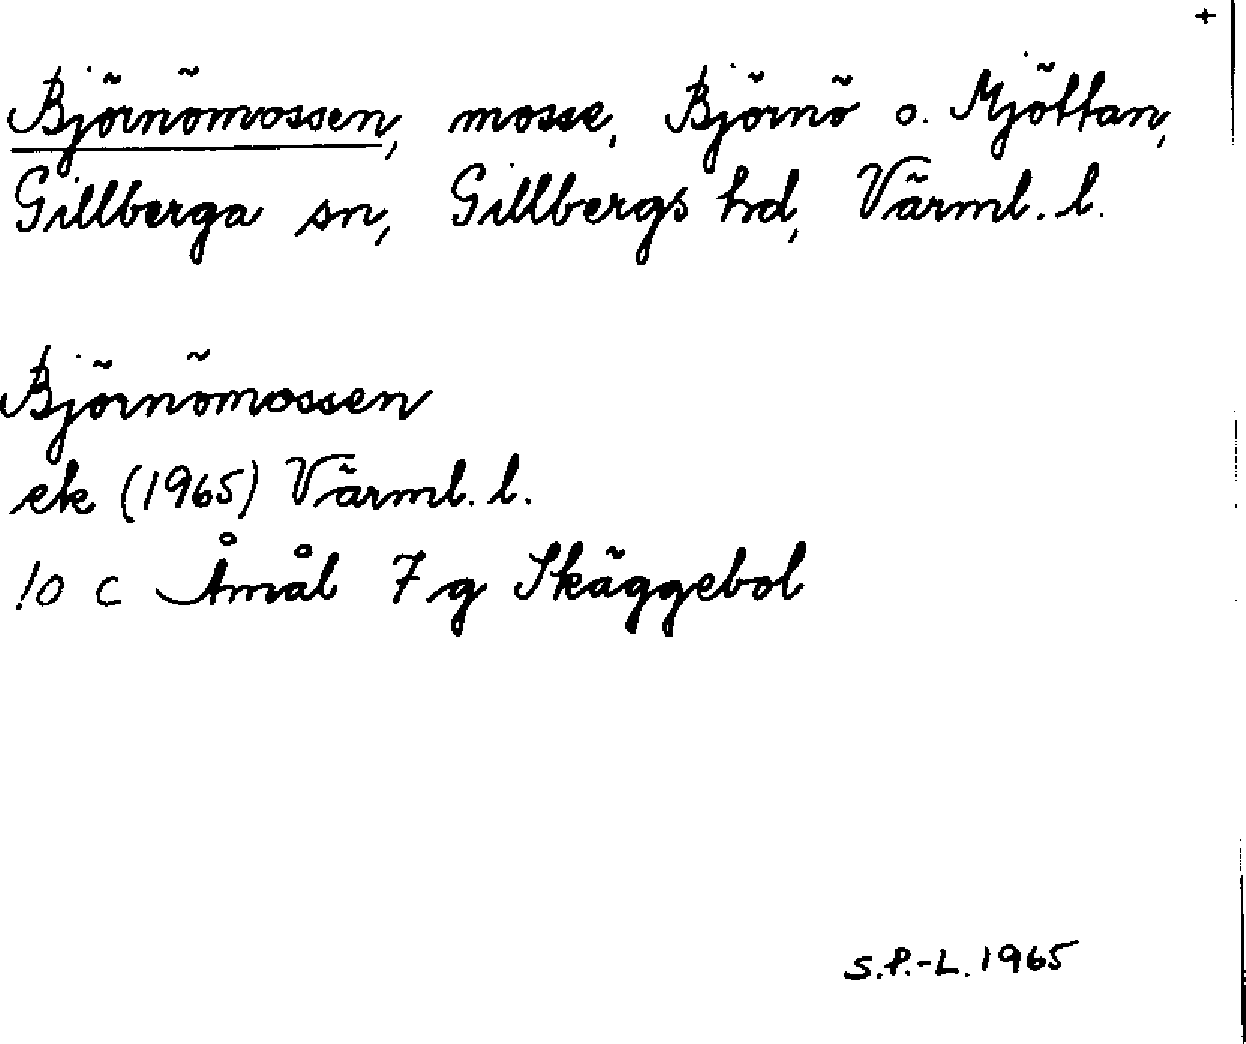 +
Björnömossen, mosse, Björnö o. Mjöttan,
Gillberga sn, Gillbergs hd, Värml. l.
Björnömossen
ek (1965) Värml. l.
10 c Åmål 7 g Skäggebol
S.P.-L. 1965